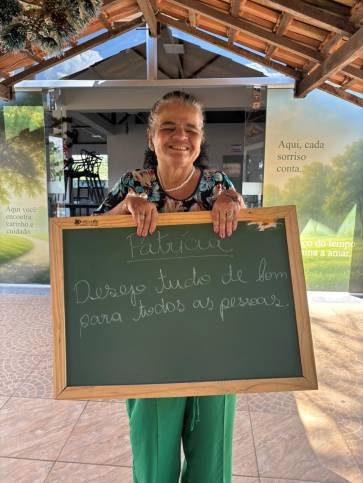 Patrícia
Desejo tudo de bom
para todos as pessoas.
Aqui, cada
sorriso
conta.
Aqui você
encontra
carinho e
cuidado.
do tempo
a amar.